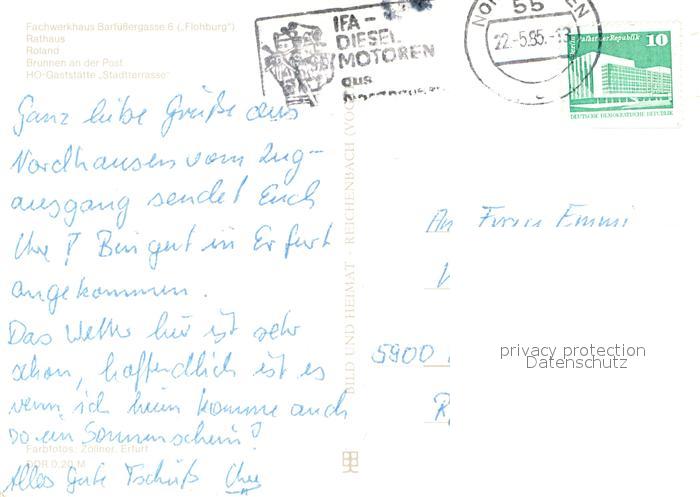 Fachwerkhaus Barfüßergasse 6 („Flohburg“)
Rathaus
Roland
Brunnen an der Post
HO-Gaststätte „Stadtterrasse“
IFA-
DIESEL
MOTOREN
aus
55
22.-5.85.-13
Palast der Republik 10
DEUTSCHE DEMOKRATISCHE REPUBLIK
Ganz liebe Grüße aus
Nordhausen vom Zug-
ausgang sendet Euch
Uwe! Bin gut in Erfurt
angekommen.
Das Wetter hier ist sehr
schön, hoffendlich ist es
wenn ich heim komme auch
so ein Sonnenschein!
Alles Gute Tschüß Uwe
Farbfotos: Zöllner, Erfurt
DDR 0,20 M
BILD UND HEIMAT REICHENBACH (VOG
An
5900
privacy protection
Datenschutz